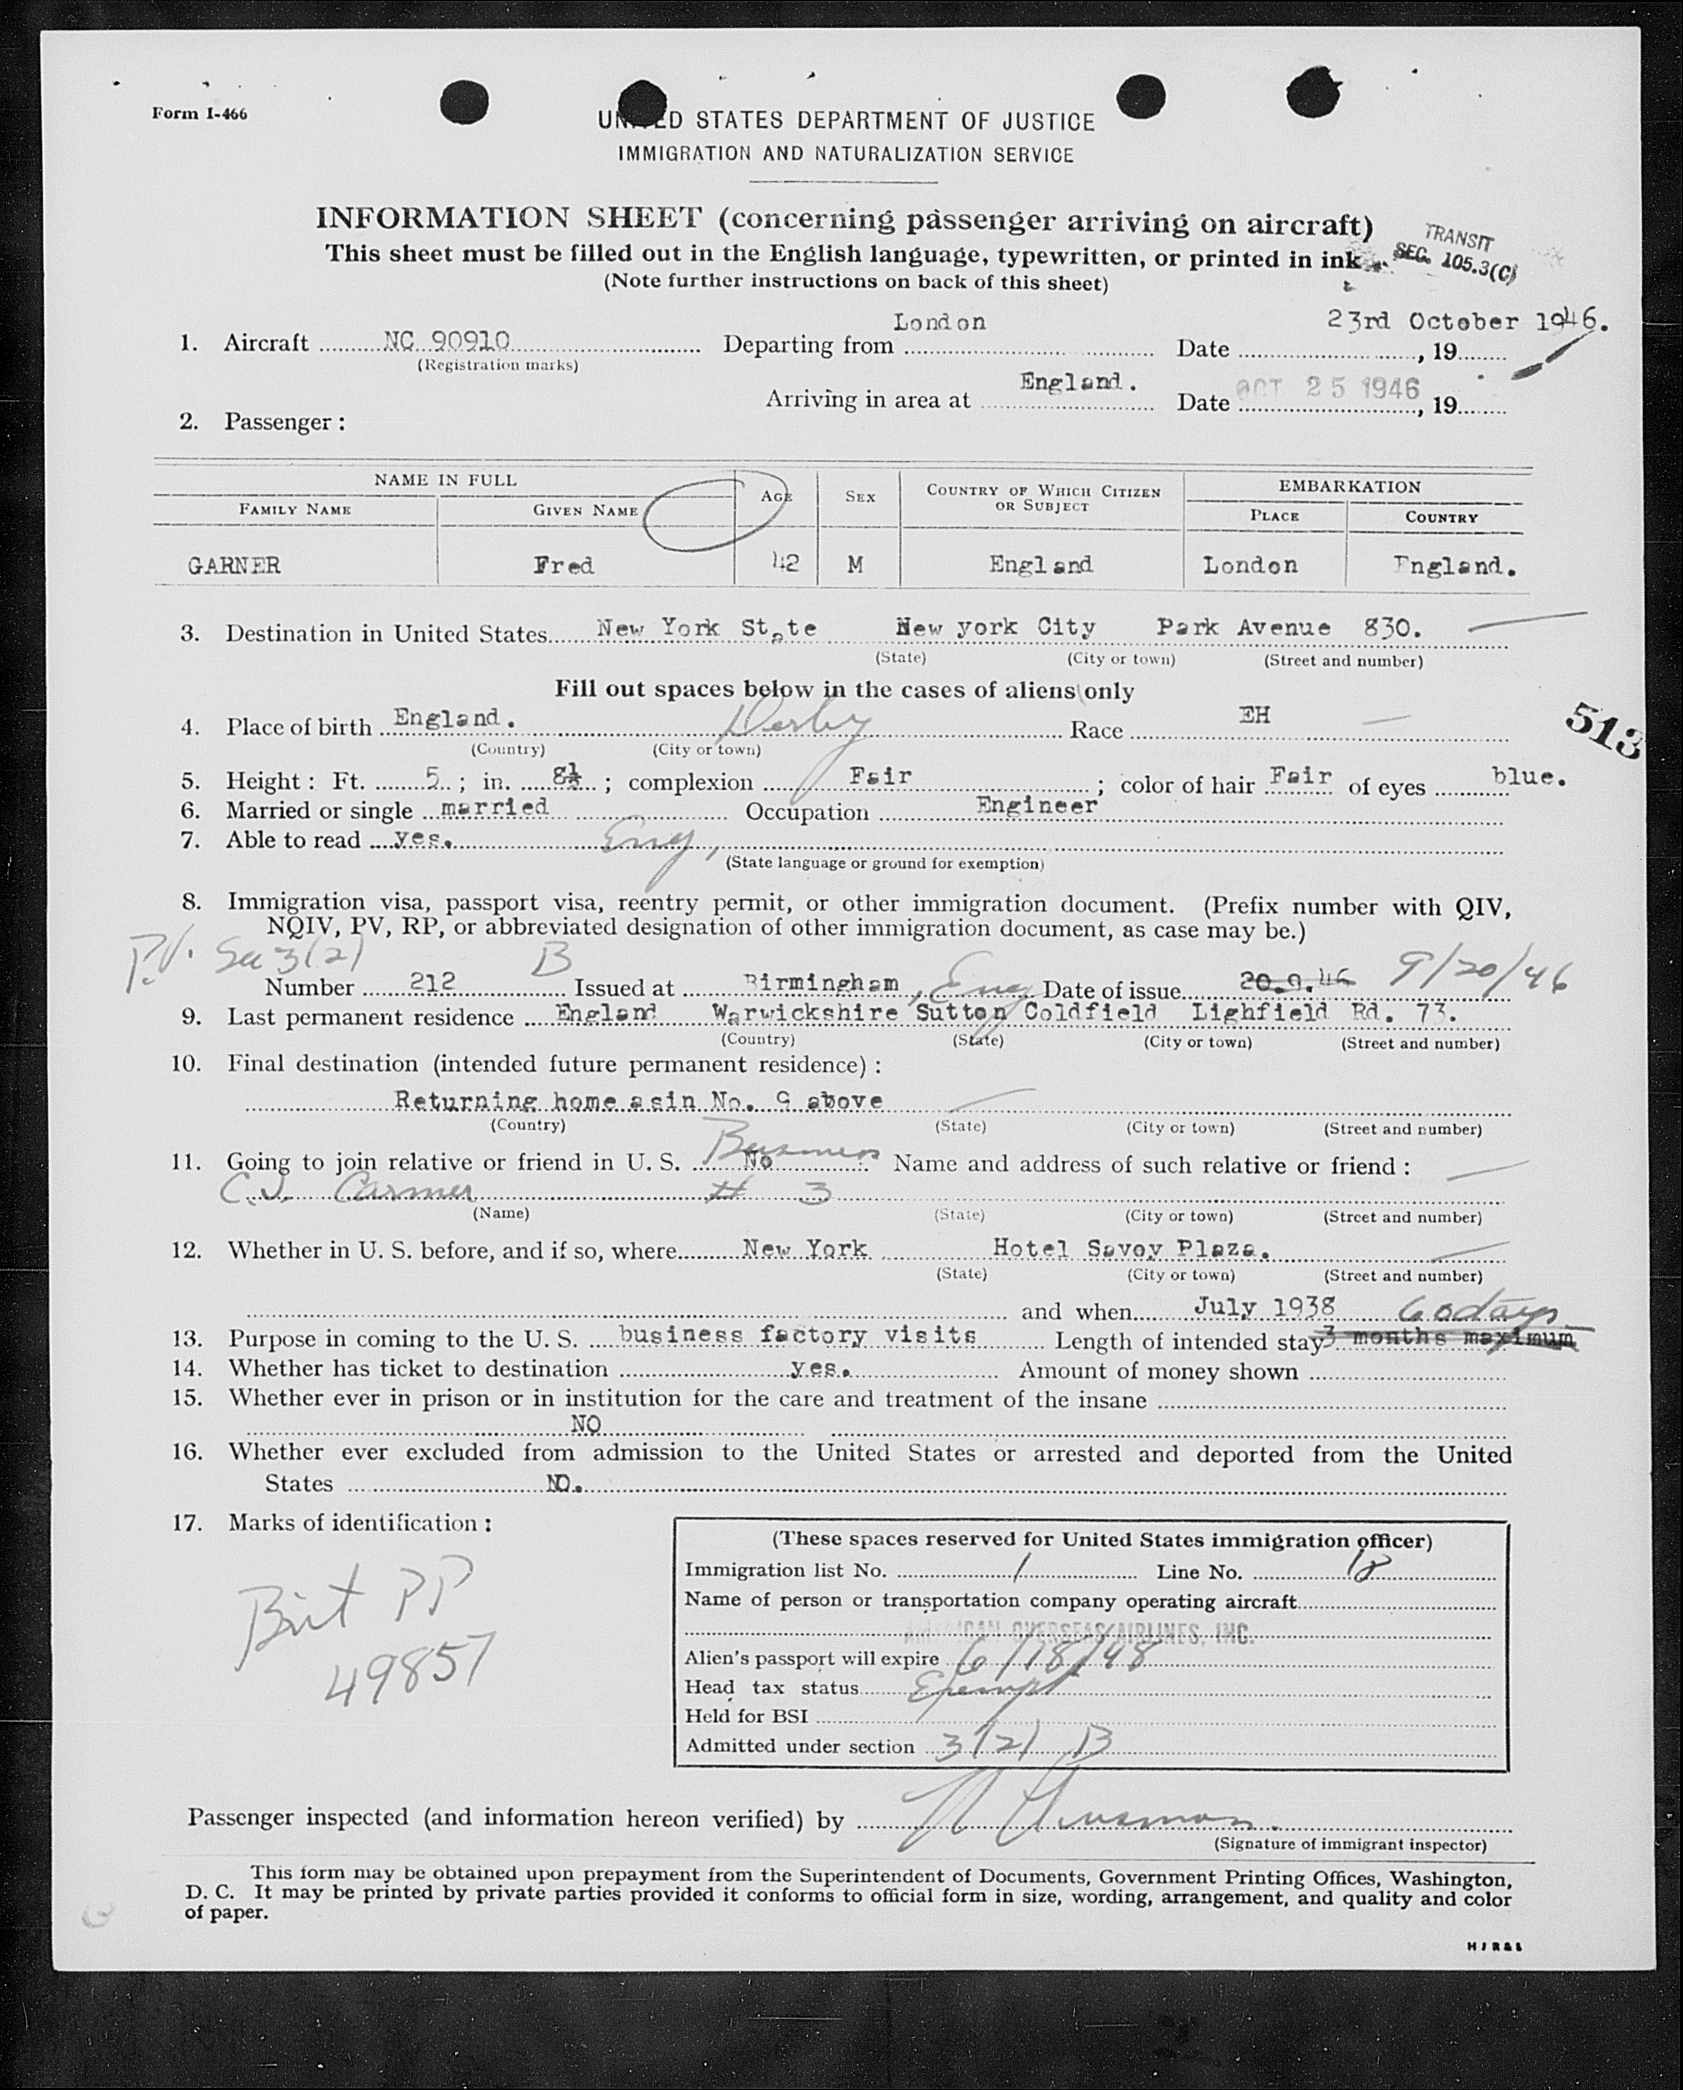 Form I-466
UNITED STATES DEPARTMENT OF JUSTICE
IMMIGRATION AND NATURALIZATION SERVICE
INFORMATION SHEET (concerning passenger arriving on aircraft)
This sheet must be filled out in the English language, typewritten, or printed in ink.
TRANSIT
SEC. 105.3(C)
(Note further instructions on back of this sheet)
1. Aircraft NC 90910 Departing from London Date 23rd October 1946. , 19
(Registration marks)
Arriving in area at England. Date OCT 25 1946 , 19
2. Passenger :
NAME IN FULL AGE SEX COUNTRY OF WHICH CITIZEN OR SUBJECT EMBARKATION
FAMILY NAME GIVEN NAME PLACE COUNTRY
GARNER Fred 42 M England London England.
3. Destination in United States New York State New york City Park Avenue 830.
(State) (City or town) (Street and number)
Fill out spaces below in the cases of aliens only
4. Place of birth England. Derby Race EH
(Country) (City or town)
513
5. Height : Ft. 5 ; in. 8½ ; complexion Fair ; color of hair Fair of eyes blue.
6. Married or single married Occupation Engineer
7. Able to read yes. Eng,
(State language or ground for exemption)
8. Immigration visa, passport visa, reentry permit, or other immigration document. (Prefix number with QIV,
NQIV, PV, RP, or abbreviated designation of other immigration document, as case may be.)
P.V. Sec 3(2) B
Number 212 Issued at Birmingham, Eng Date of issue 20.9.46 9/20/46
9. Last permanent residence England Warwickshire Sutton Coldfield Lighfield Rd. 73.
(Country) (State) (City or town) (Street and number)
10. Final destination (intended future permanent residence) :
Returning home asin No. 9 above
(Country) (State) (City or town) (Street and number)
11. Going to join relative or friend in U. S. No Business Name and address of such relative or friend :
Carmer # 3
(Name) (State) (City or town) (Street and number)
12. Whether in U. S. before, and if so, where New York Hotel Savoy Plaza.
(State) (City or town) (Street and number)
and when July 1938 60 days
13. Purpose in coming to the U. S. business factory visits Length of intended stay 3 months maximum
14. Whether has ticket to destination yes. Amount of money shown
15. Whether ever in prison or in institution for the care and treatment of the insane
NO
16. Whether ever excluded from admission to the United States or arrested and deported from the United
States NO.
17. Marks of identification :
Brit PP
49857
(These spaces reserved for United States immigration officer)
Immigration list No. 1 Line No. 18
Name of person or transportation company operating aircraft
AMERICAN OVERSEAS AIRLINES, INC.
Alien's passport will expire 6/18/48
Head tax status Exempt
Held for BSI
Admitted under section 3(2) B
Passenger inspected (and information hereon verified) by
(Signature of immigrant inspector)
This form may be obtained upon prepayment from the Superintendent of Documents, Government Printing Offices, Washington,
D. C. It may be printed by private parties provided it conforms to official form in size, wording, arrangement, and quality and color
of paper.